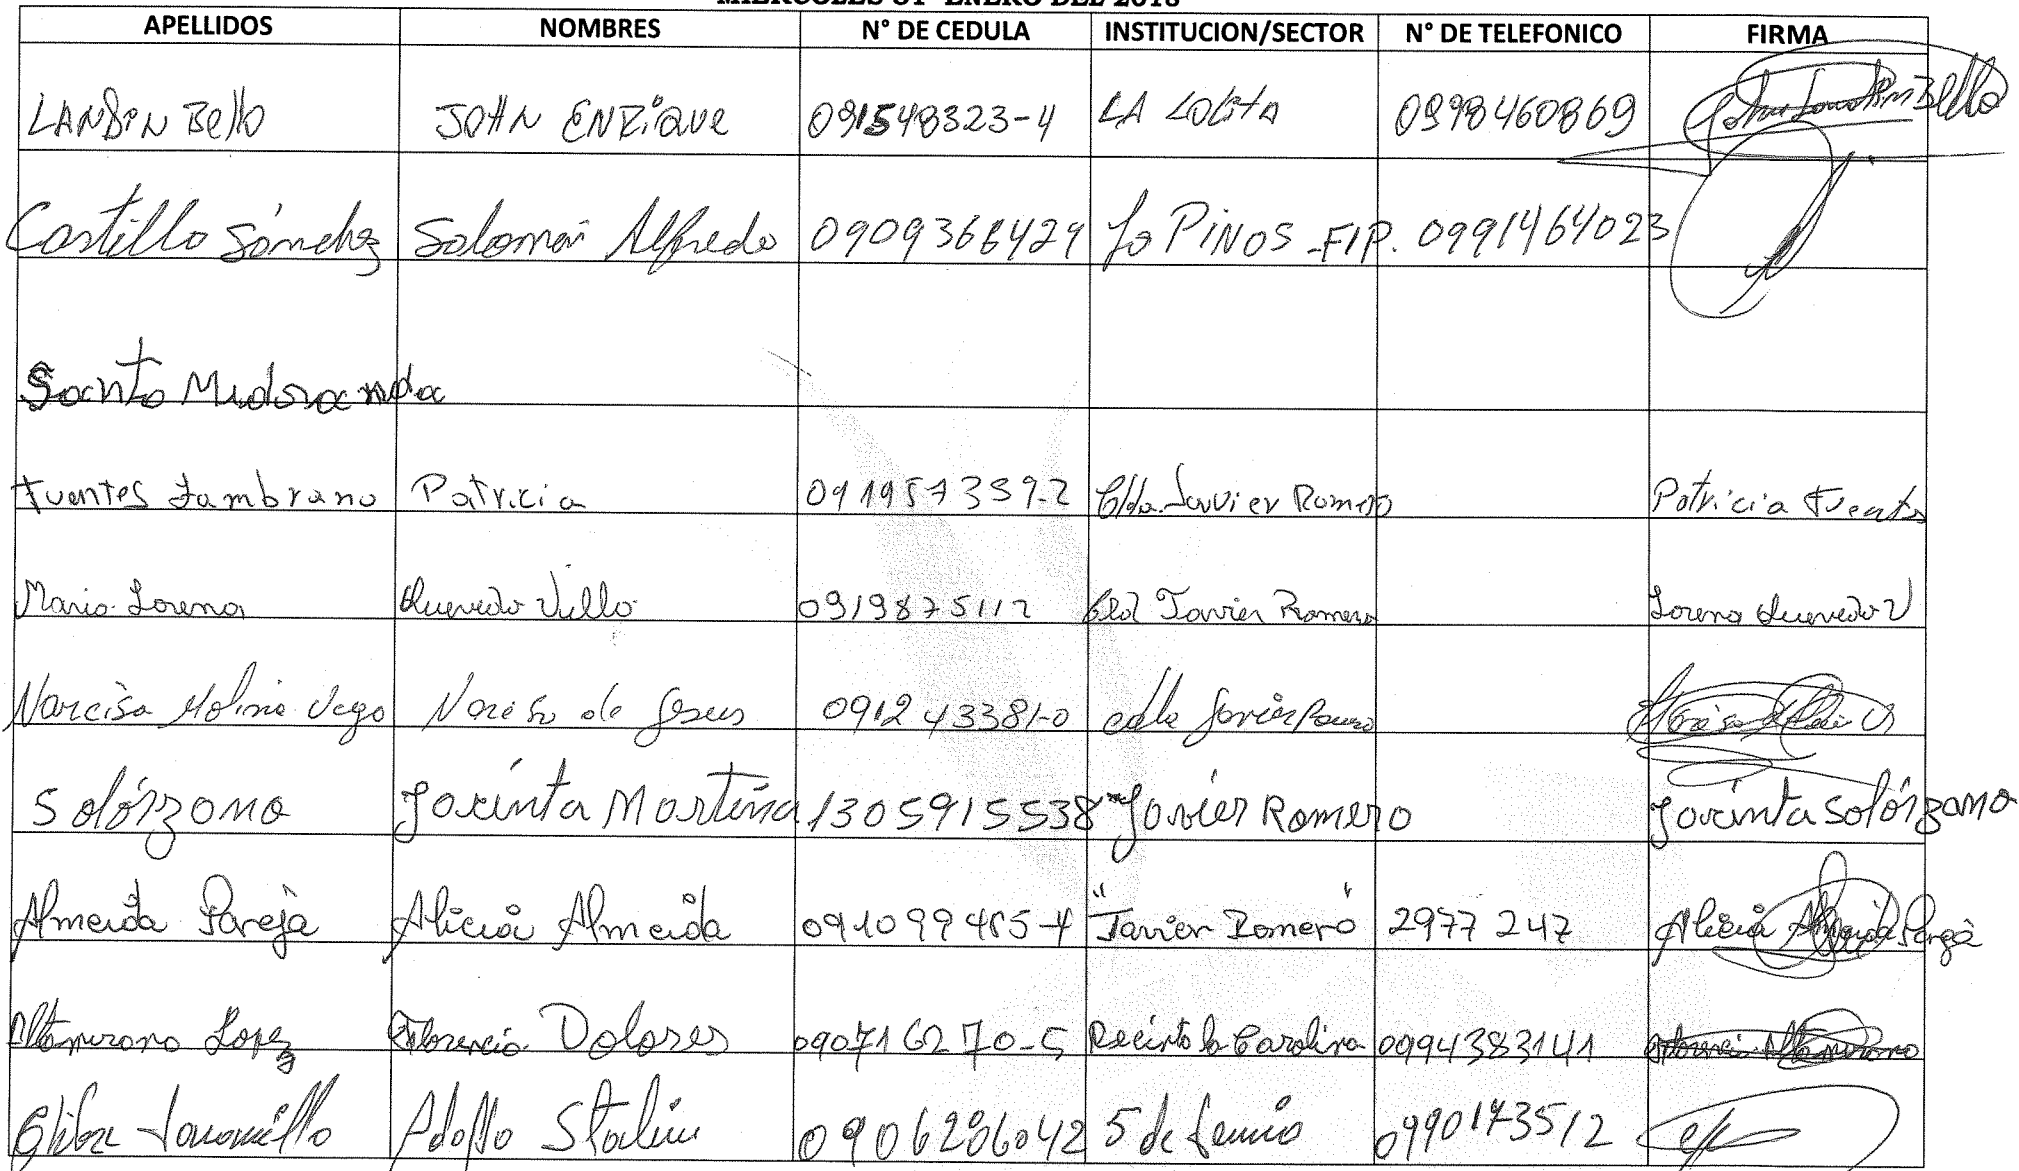 MIERCOLES 31 ENERO DEL 2018
APELLIDOS NOMBRES N° DE CEDULA INSTITUCION/SECTOR N° DE TELEFONICO FIRMA
LANDIN Bello JOHN ENRIQUE 091548323-4 LA LOLITA 0998460869 Bello
Castillo Sánchez Solomón Alfredo 0909368429 PINOS -FIP. 0991464023
Santo
Fuentes Zambrano Patricia 091957359-2 Javvier Romero Patricia Fuentes
Maria Lorena Quevedo Villo 0919875112 Javier Romero Lorena Quevedo V
Narcisa Molina Vega Narcisa de Jesus 091243381-0 cdla Javier Romero
Solórzano Jacinta Martina 1305915538 "Javier Romero Jacinta Solórzano
Almeida Pareja Alicia Almeida 091099465-4 "Javier Romero" 2977 247 Alicia Almeida Pareja
Altamirano Lopez Florencia Dolores 090716270-5 Recinto la Carolina 0994383141 Florencia Altamirano
Jaramillo Adolfo Stalin 0906286042 5 de Junio 0990173512